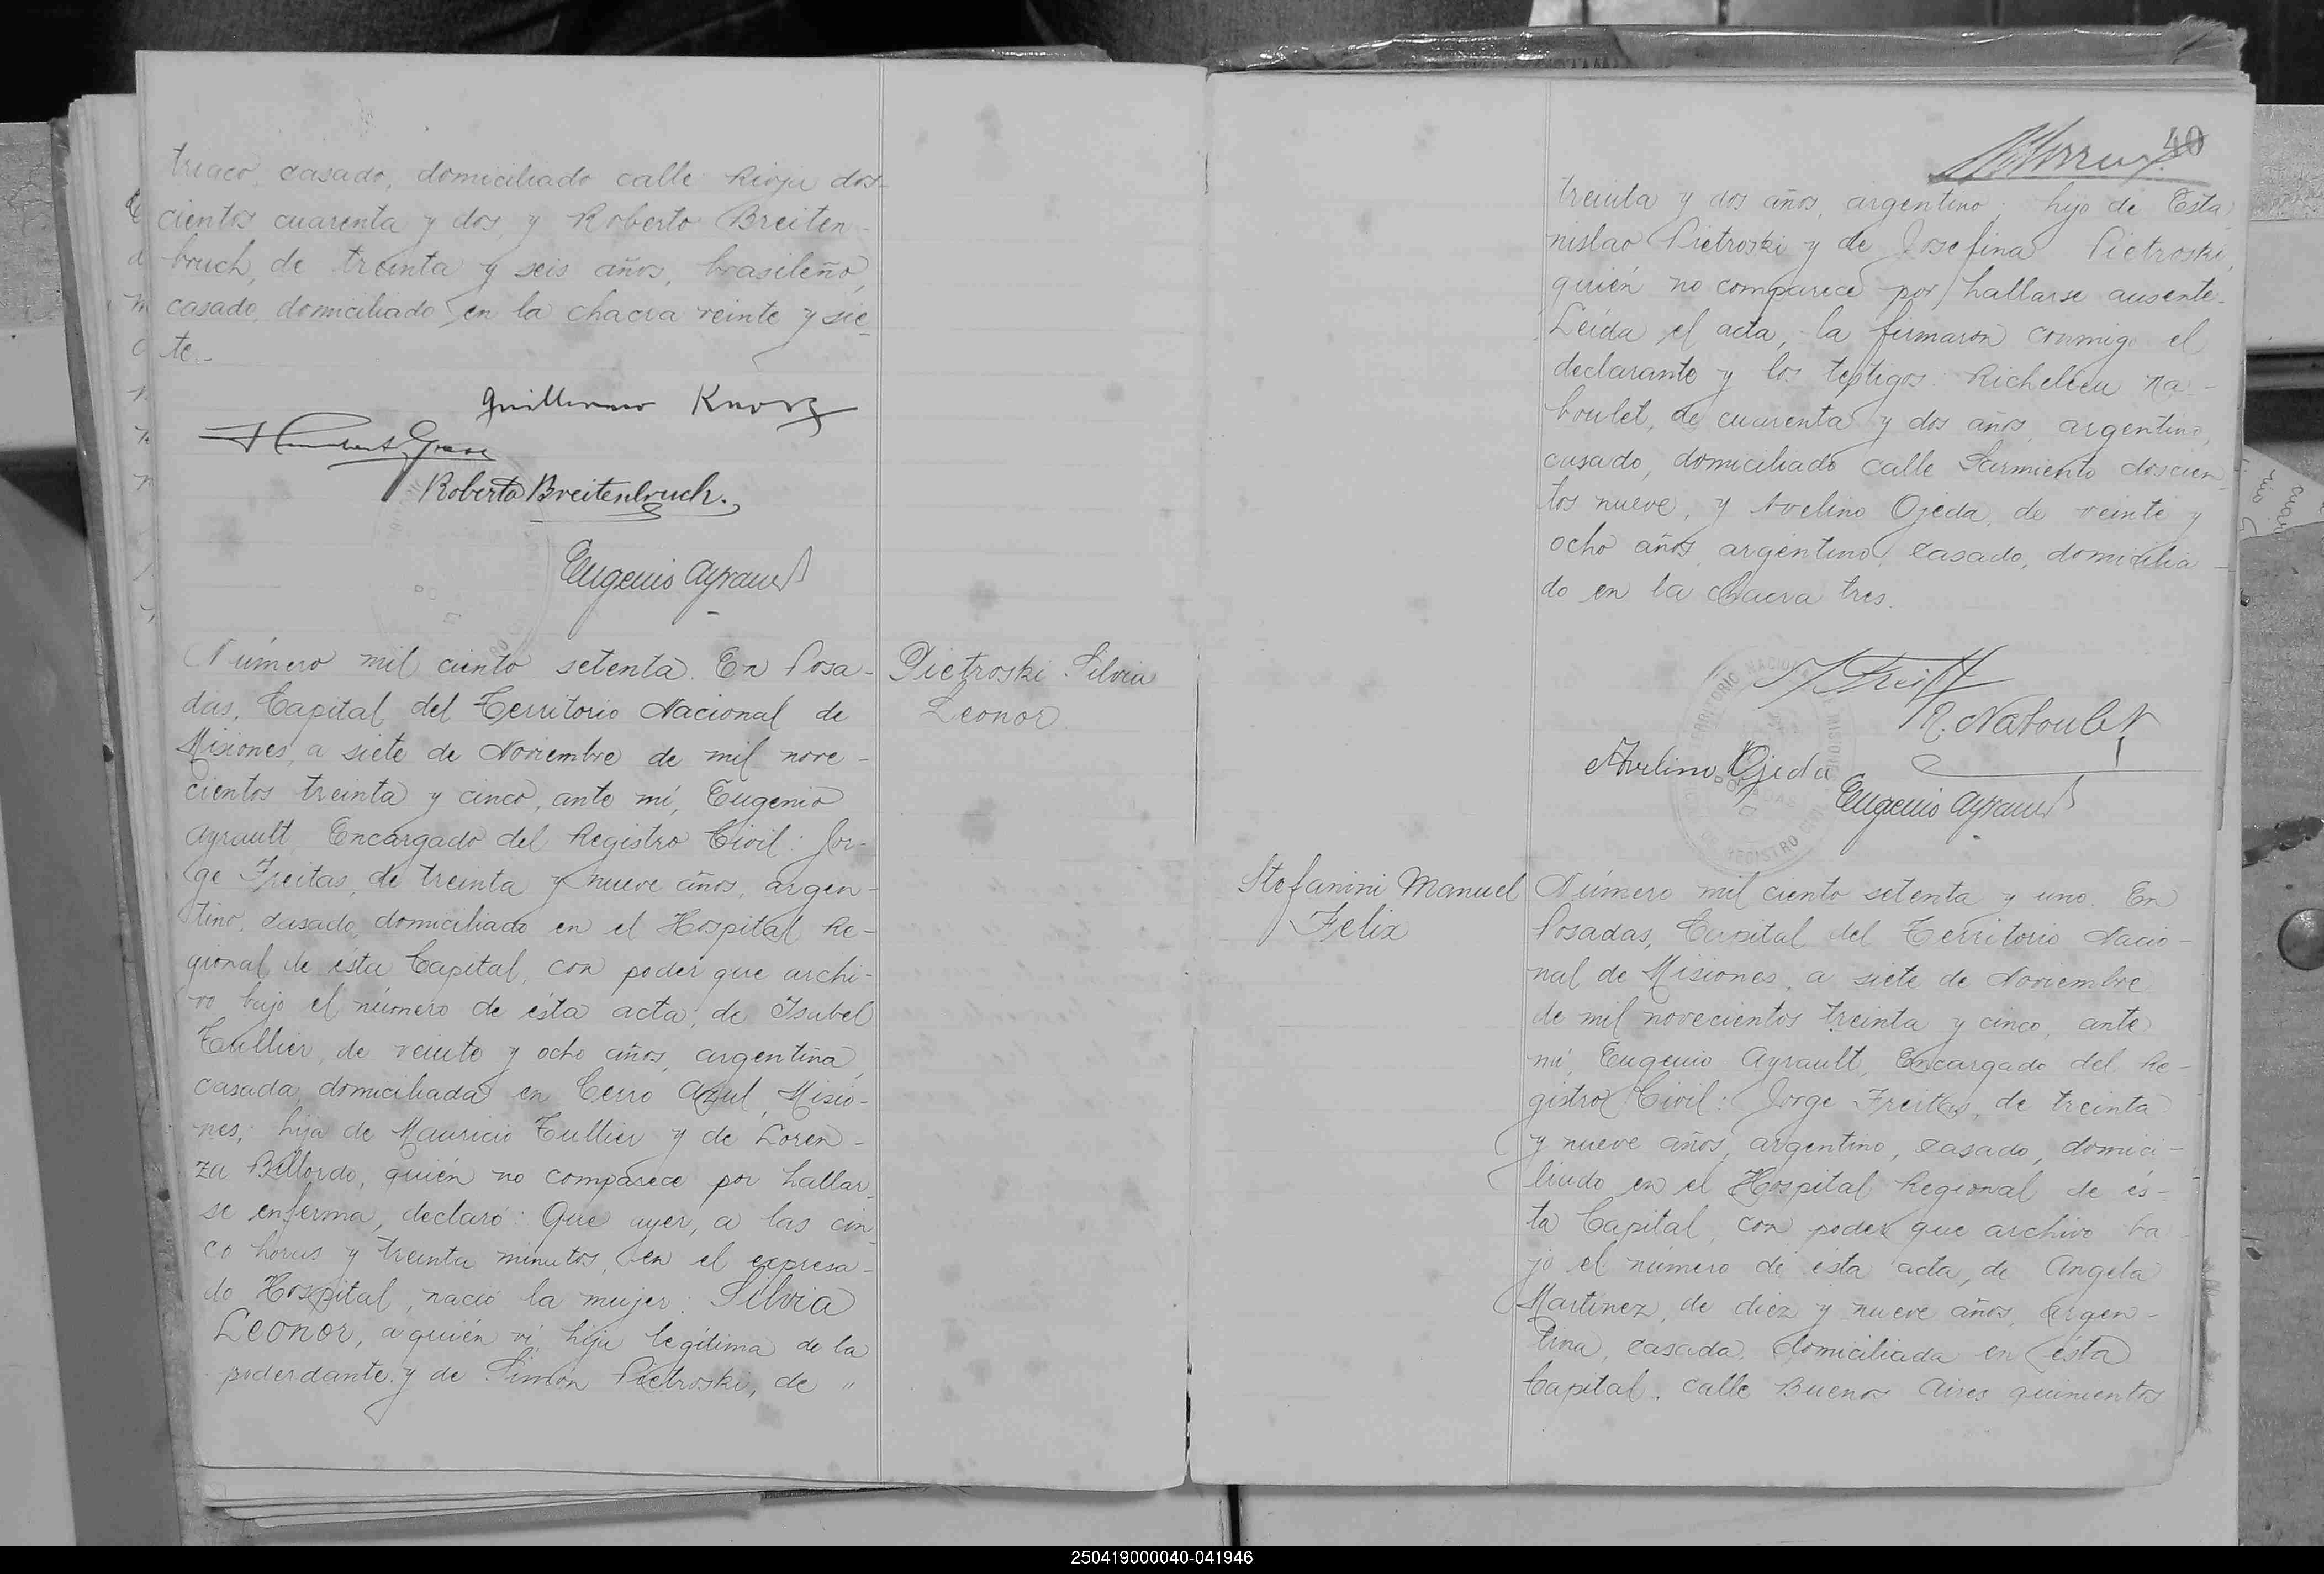 triaco, casado, domiciliado calle Rioja dos-
cientos cuarenta y dos y Roberto Breiten-
bruch, de treinta y seis años, brasileño,
casado, domiciliado en la chacra veinte y sie-
te.-
Guillermo Knorz
Roberto Breitenbruch.
Eugenio Ayrault
Número mil ciento setenta. En Posa-
das, Capital del Territorio Nacional de
Misiones, a siete de Noviembre de mil nove-
cientos treinta y cinco, ante mí, Eugenio
Ayrault, Encargado del Registro Civil: Jor-
ge Freitas, de treinta y nueve años, argen-
tino, casado, domiciliado en el Hospital Re-
gional de ésta Capital, con poder que archi-
vo bajo el número de ésta acta, de Isabel
Tullier, de veinte y ocho años, argentina,
casada, domiciliada en Cerro Azul, Misio-
nes; hija de Mauricio Tullier y de Loren-
za Billordo, quién no comparece por hallar-
se enferma, declaró: Que ayer, a las cin-
co horas y treinta minutos, en el expresa-
do Hospital, nació la mujer: Silvia
Leonor, a quién ví, hija legítima de la
poderdante y de Simón Pietroski, de "
Pietroski Silvia
Leonor
40
treinta y dos años, argentino, hijo de Esta
nislao Pietroski y de Josefina Pietroski,
quién no comparece por hallarse ausente.
Leída el acta, la firmaron conmigo el
declarante y los testigos: Richelieu Na-
boulet, de cuarenta y dos años, argentino,
casado, domiciliado calle Sarmiento doscien-
tos nueve, y Avelino Ojeda, de veinte y
ocho años, argentino, casado, domicilia-
do en la chacra tres.
R. Naboulet
Avelino Ojeda
Eugenio Ayrault
Stefanini Manuel
Felix
Número mil ciento setenta y uno. En
Posadas, Capital del Territorio Nacio-
nal de Misiones, a siete de Noviembre
de mil novecientos treinta y cinco, ante
mí, Eugenio Ayrault, Encargado del Re-
gistro Civil: Jorge Freitas, de treinta
y nueve años, argentino, casado, domici-
liado en el Hospital Regional de és-
ta Capital, con poder que archivo ba
jo el número de ésta acta, de Angela
Martinez, de diez y nueve años, argen-
tina, casada, domiciliada en ésta
Capital, calle Buenos Aires quinientos
250419000040-041946